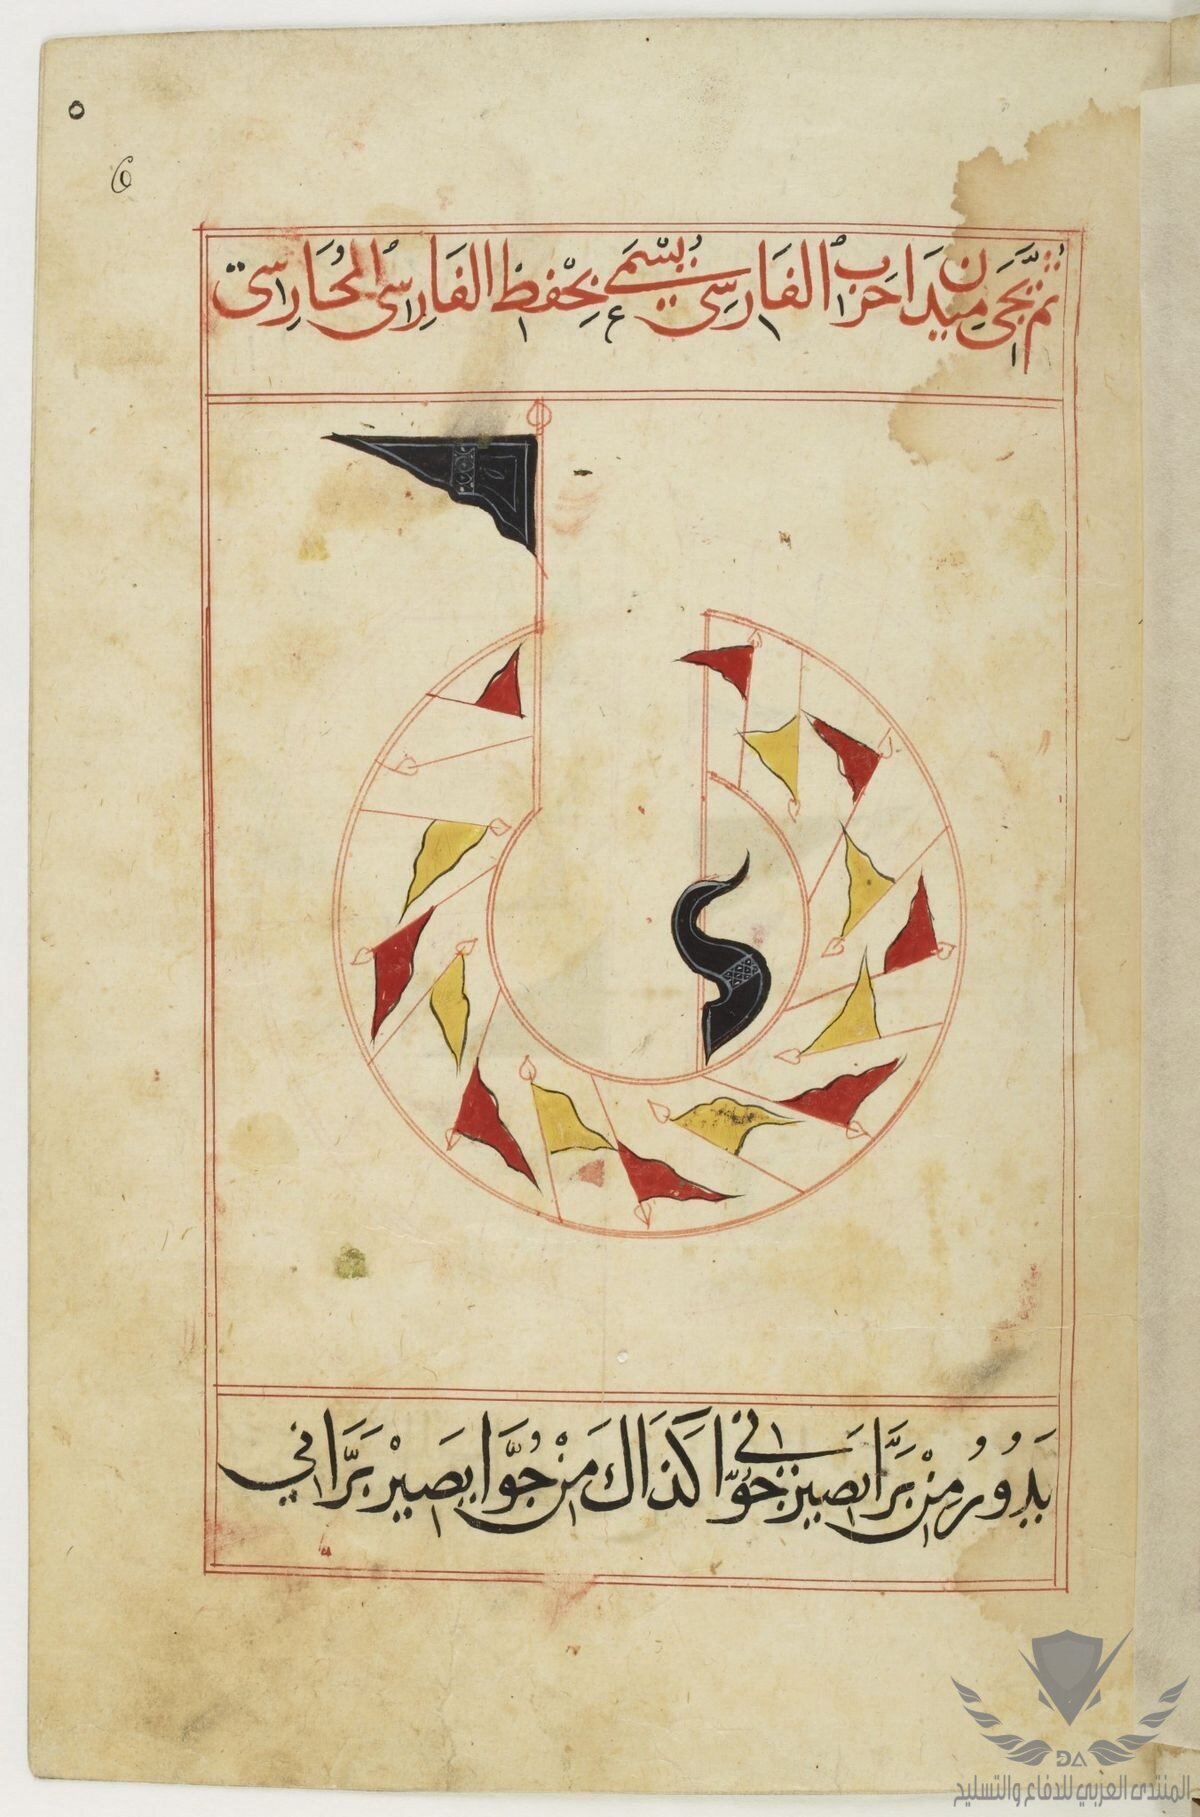 ٥
6
ثم يجي ميدان احرب الفارس يسمى بحفظ الفارس الحارسى
يدور من برا يصير جوّاني كذاك من جوّا يصير برّاني
DA
المنتدى العربي للدفاع والتسليح